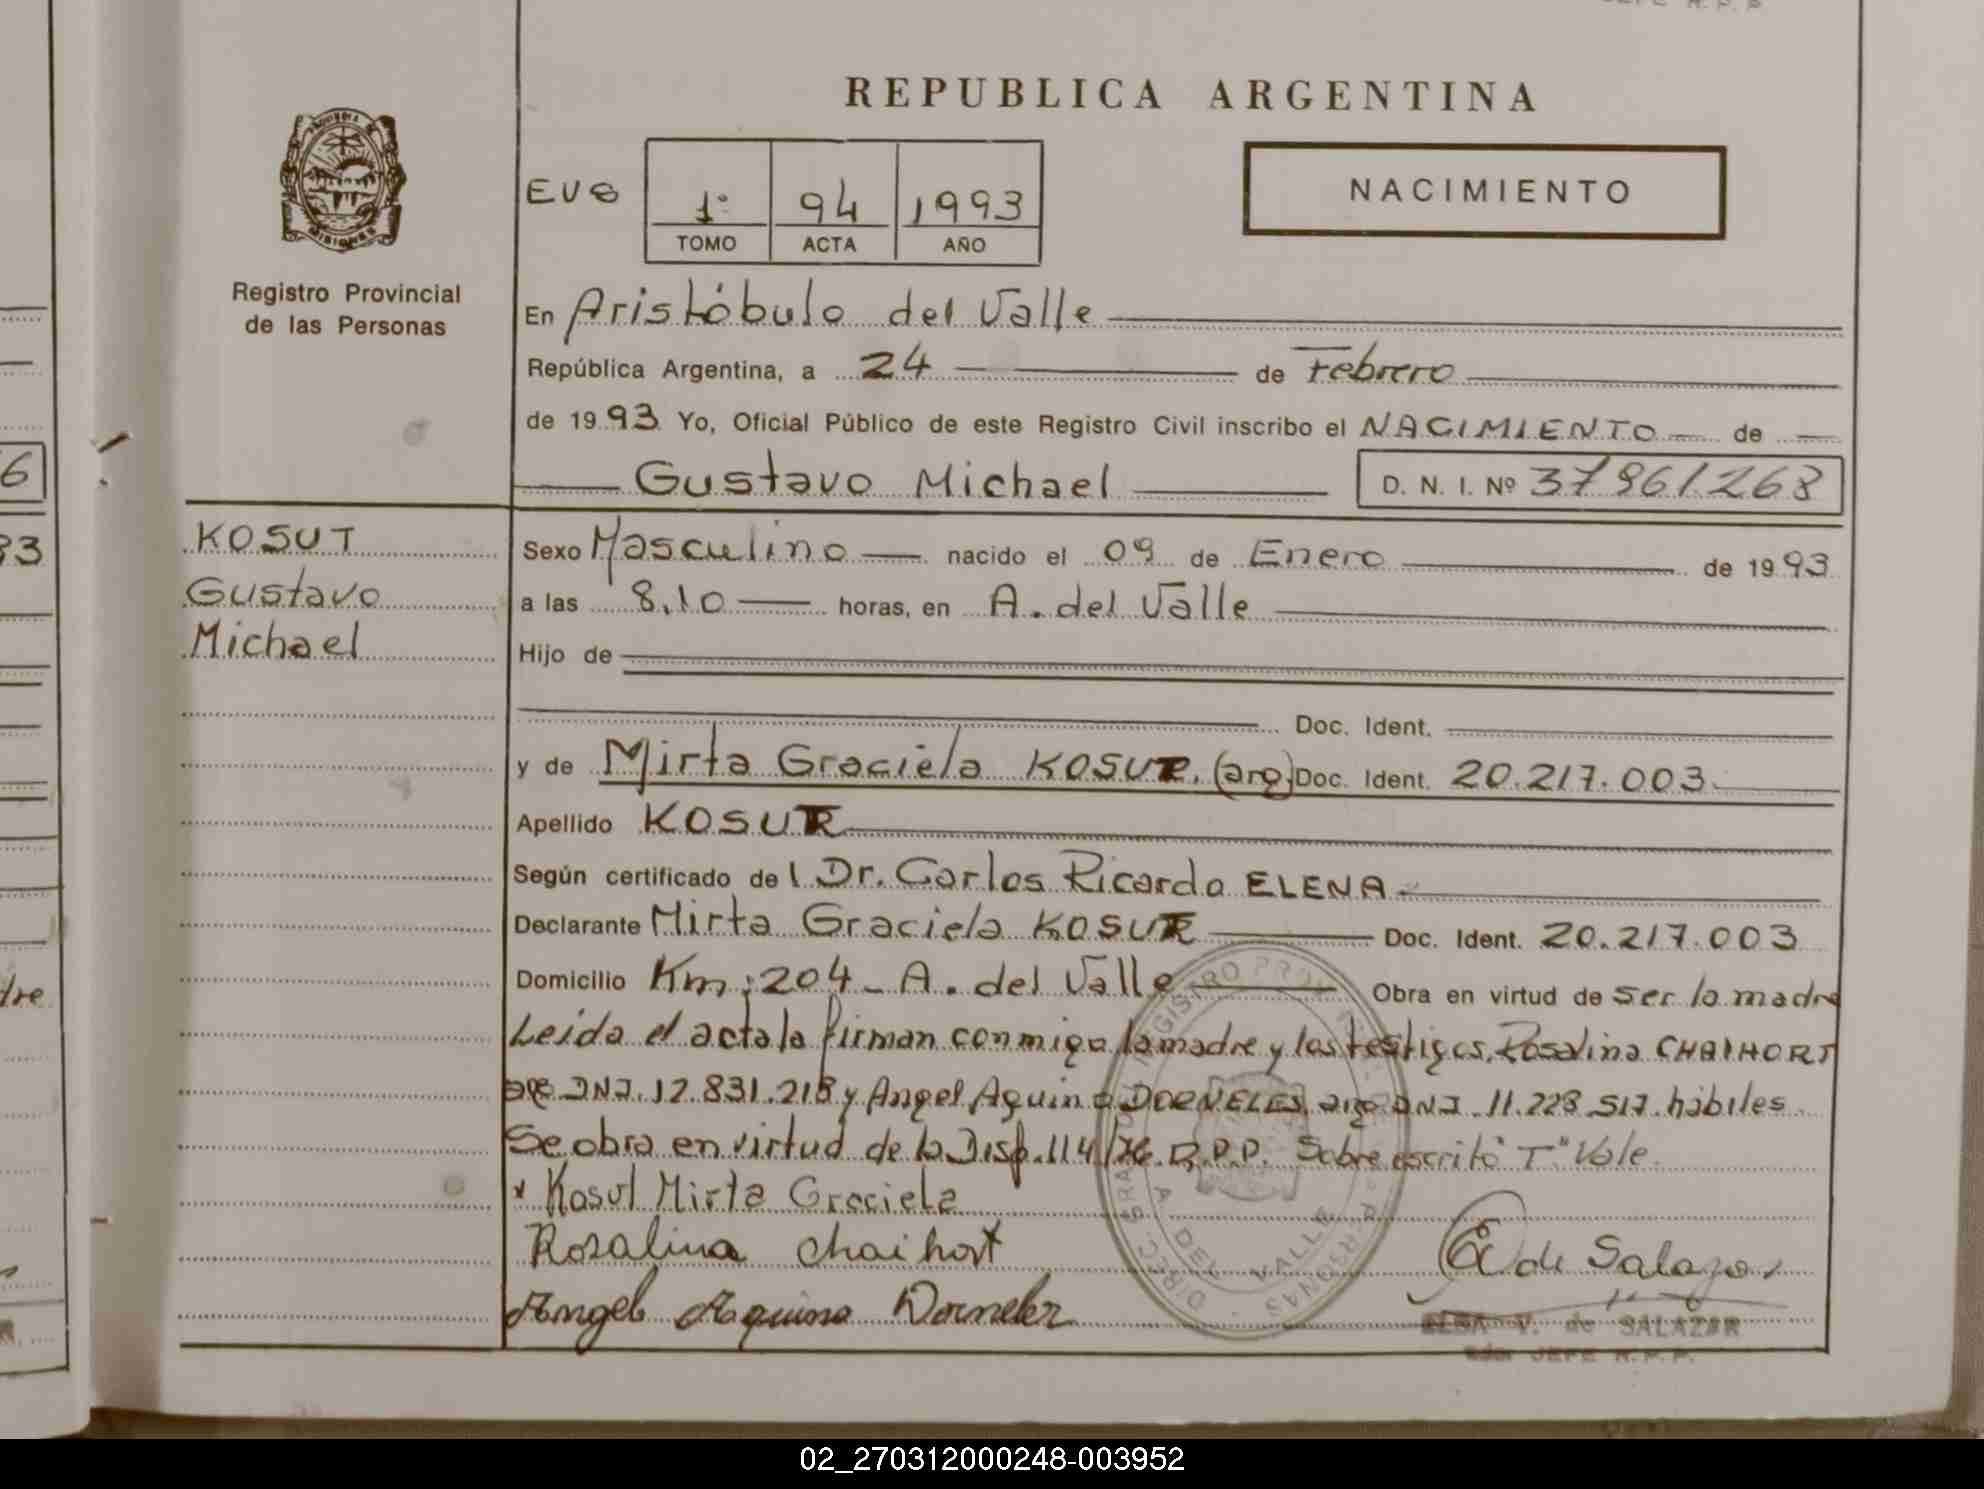 REPUBLICA ARGENTINA
NACIMIENTO
1º 94 1993
TOMO ACTA AÑO
Registro Provincial
de las Personas
En Aristóbulo del Valle
República Argentina, a 24 de Febrero
de 1993 Yo, Oficial Público de este Registro Civil inscribo el NACIMIENTO de
Gustavo Michael D. N. I. Nº 37861268
KOSUT
Gustavo
Michael
Sexo Masculino nacido el 09 de Enero de 1993
a las 8,10 horas, en A. del Valle
Hijo de
Doc. Ident.
y de Mirta Graciela KOSUT (arg) Doc. Ident. 20.217.003
Apellido KOSUT
Según certificado del Dr. Carlos Ricardo ELENA
Declarante Mirta Graciela KOSUT Doc. Ident. 20.217.003
Domicilio Km: 204 - A. del Valle Obra en virtud de ser la madre
Leida el acta la firman conmigo, la madre y los testigos, Rosalina CHAIHORT
arg DNI. 12.831.218 y Angel Aquino DORNELES, arg DNI. 11.228.517. hábiles.
Se obra en virtud de la Disp. 114/76. R.P.P. Sobre escrito "T" Vale.
x Kosut Mirta Graciela
Rosalina Chaihort
Angel Aquino Dorneles
de Salazar
ELSA V. de SALAZAR
JEFE R.P.P.
A DEL VALLE
02_270312000248-003952